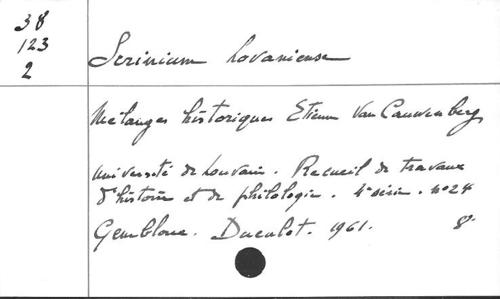 38
123
2
Scrinium Lovaniense
Mélanges historiques Etienne Van Cauwenbergh
Université de Louvain. Recueil de travaux
d'histoire et de philologie. 4e série. no 24
Gembloux. Duculot. 1961. 8°